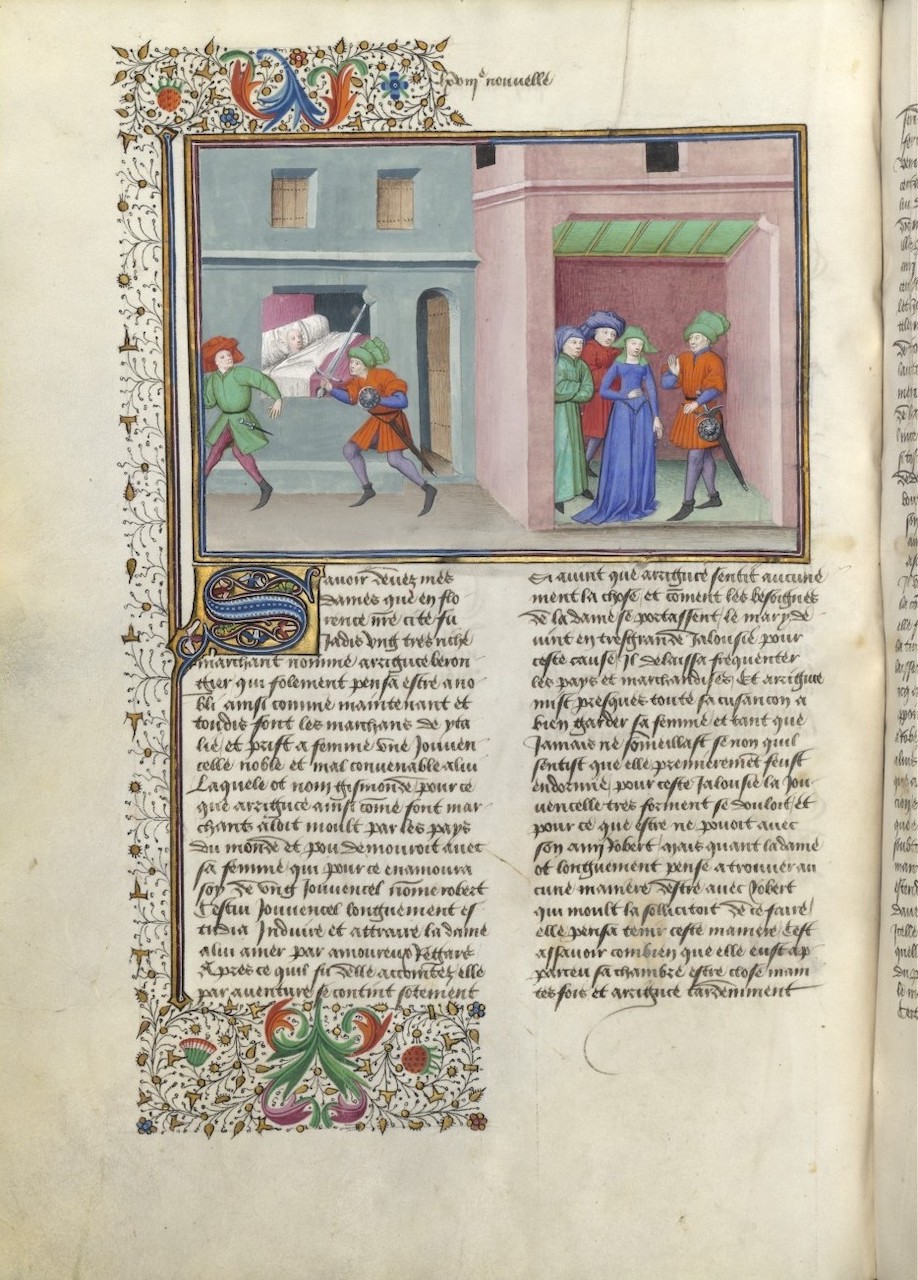 viijᵉ nouvelle
Sauoir deuez mes
dames que en flo
rence nre cite fu
Jadis vng tres riche
marchant nomme arriguce beron
gier qui folement pensa estre ano
bli ainsi comme maintenant et
toudis font les marchans de yta
lie et prist a femme vne Jouuen
celle noble et mal conuenable a lui
Laquele ot nom gismonde pour ce
que arriguce ainsi come font mar
chans aloit moult par les pays
du monde et pou demouroit auec
sa femme qui pour ce enamoura
soy de vng Jouuencel nome robert
Cestui Jouuencel longuement es
tudia Induire et attraire la dame
a lui amer par amoureux Regars
Apres ce quil fu delle accointez elle
par auenture se contint sotement
Si auint que arriguce sentit aucune
ment la chose et coment les besoignes
de la dame se portassent le mary de
uint en tresgrande Jalousie pour
ceste cause Il delaissa frequenter
les pays et marchandises Et arriguce
mist presques toute sa cusancon a
bien garder sa femme et tant que
Jamais ne someillast se non quil
sentist que elle premierement feust
endormie pour ceste Jalousie la Jou
uencelle tres forment se douloit et
pour ce que estre ne pouoit auec
son amy Robert Mais quant la dame
ot longuement pense a trouuer au
cune maniere destre auec Robert
qui moult la sollicitoit de ce faire
elle pensa tenir ceste maniere Cest
assauoir combien que elle eust ap
parceu sa chambre estre close main
tes fois et arriguce tardiuement